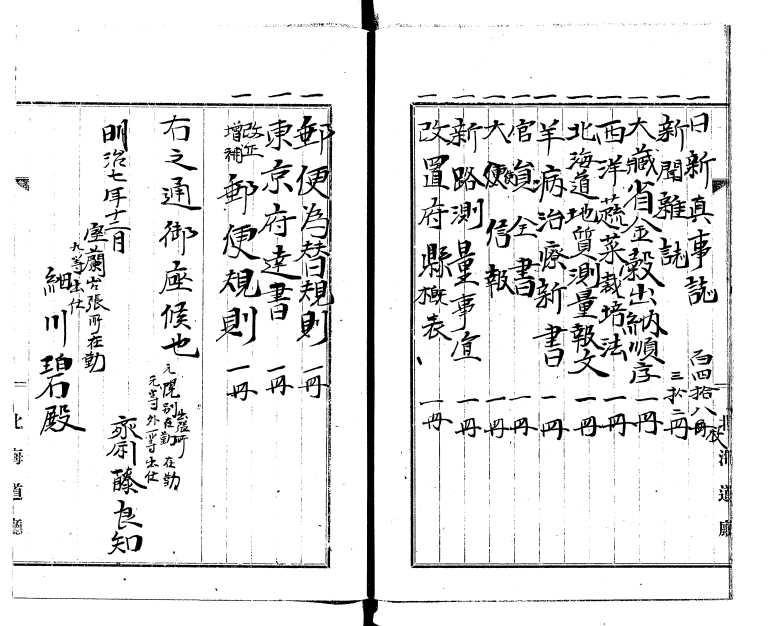 一 日新真事誌 百四拾八枚
一 新聞雑誌 三拾二冊
一 大藏省金穀出納順序 一冊
一 西洋蔬菜栽培法 一冊
一 北海道地質測量報文 一冊
一 羊病治療新書 一冊
一 官員全書 一冊
一 大 信報 一冊
一 新路測量事宜 一冊
一 改置府縣概表 一冊
北海道廳
一 郵便為替規則 一冊
一 東京府達書 一冊
一 改正増補 郵便規則 一冊
右之通御座候也
元 在勤
元等外一等出仕
齋藤良知
明治七年十二月
室蘭出張所在勤
九等出仕
細川碧殿
北海道廳